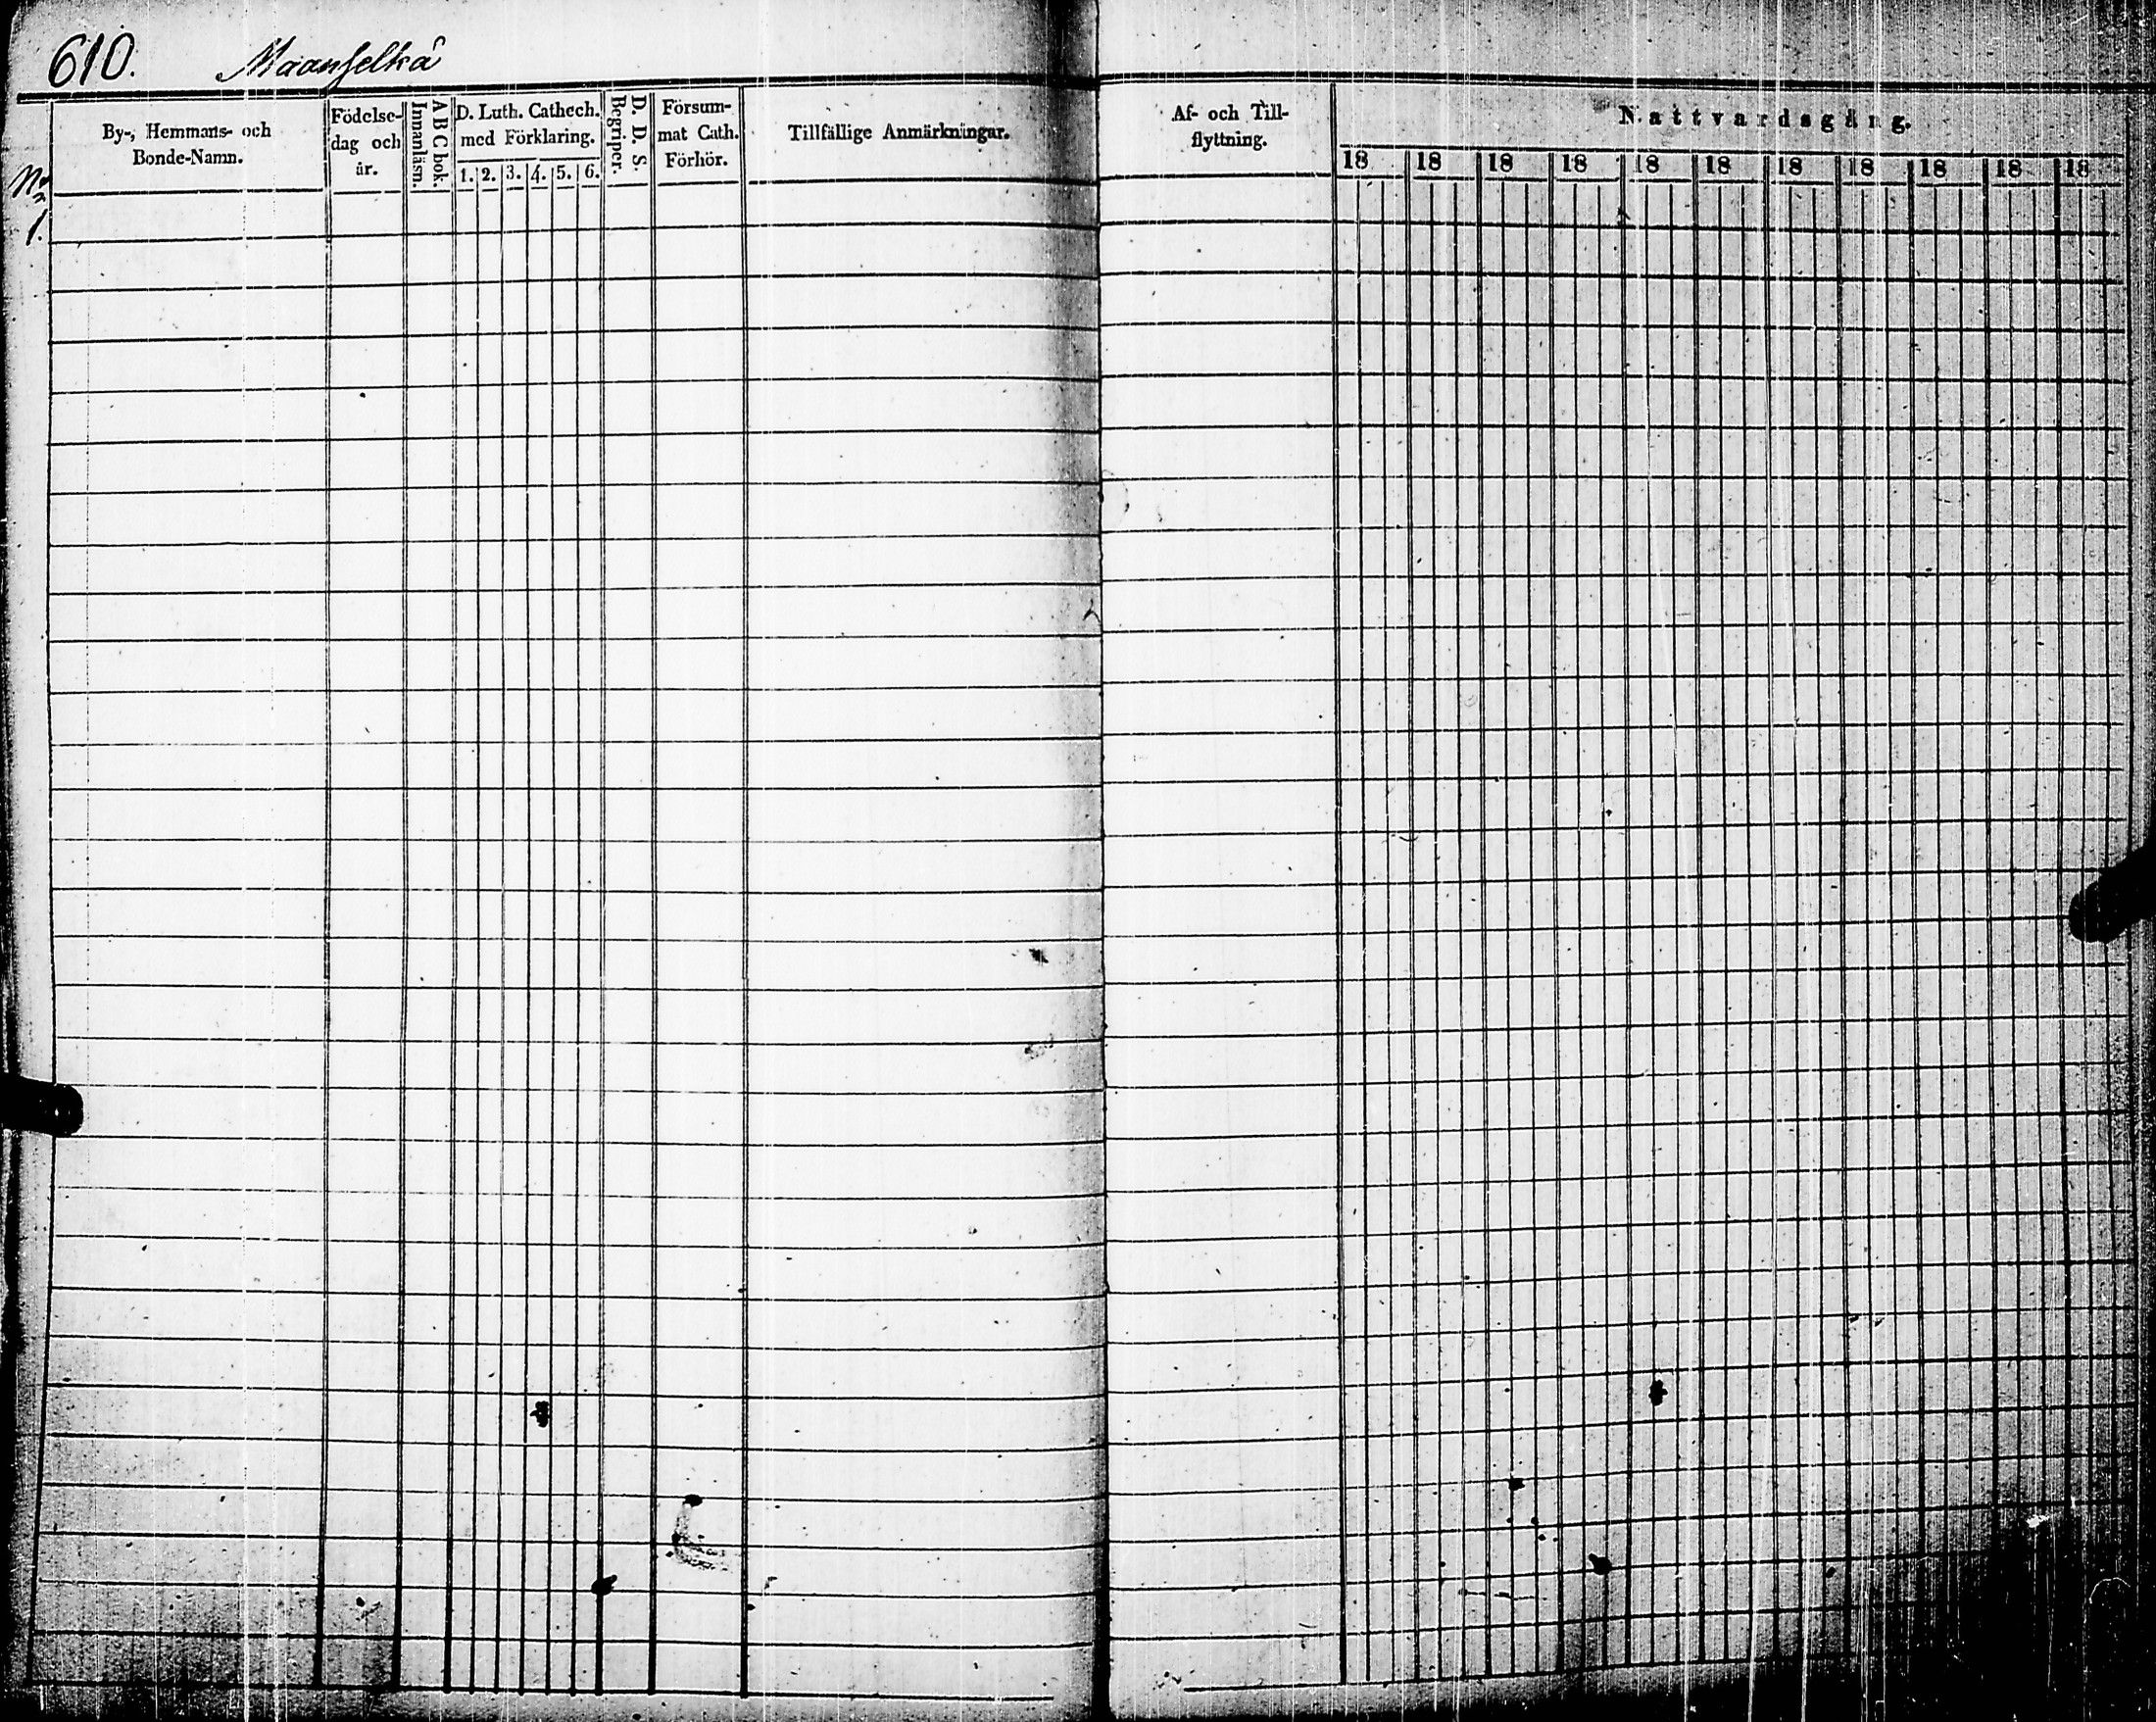 610. Maanselkä
No 1.
By-, Hemmans- och Bonde-Namn.
Födelse-dag och år.
Innanläsn.
A B C bok.
D. Luth. Cathech. med Förklaring.
1. 2. 3. 4. 5. 6.
Begriper.
D. D. S.
Försum-mat Cath. Förhör.
Tillfällige Anmärkningar.
Af- och Till-flyttning.
Nattvardsgång.
18 18 18 18 18 18 18 18 18 18 18